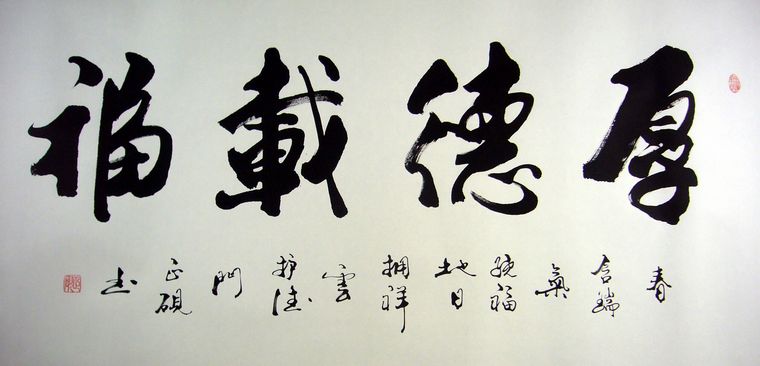 厚德載福
春
含瑞
氣
繞福
地日
拥祥
雲
护德
門
正硯
书